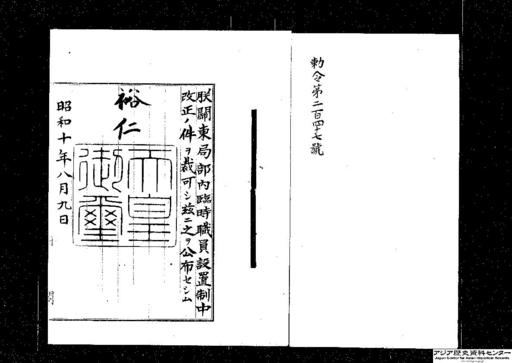 勅令第二百四十七號
朕關東局部內臨時職員設置制中
改正ノ件ヲ裁可シ玆ニ之ヲ公布セシム
裕仁
天皇御璽
昭和十年八月九日
アジア歴史資料センター
Japan Center for Asian Historical Records